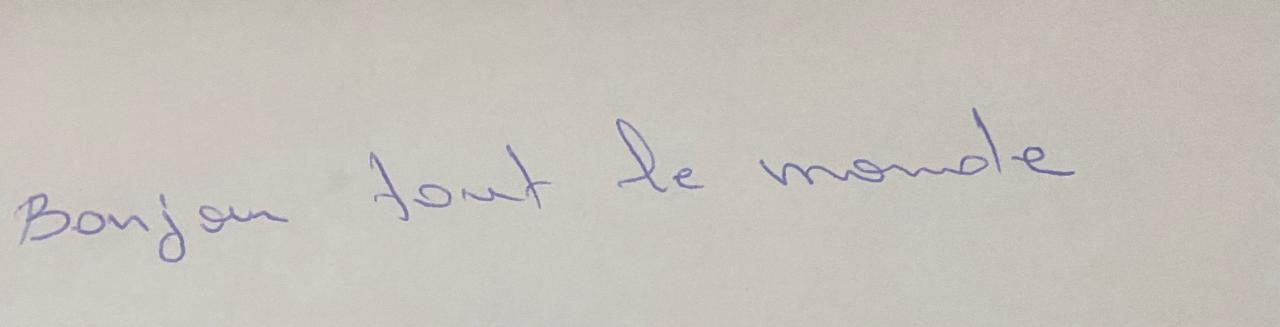 Bonjour tout le monde